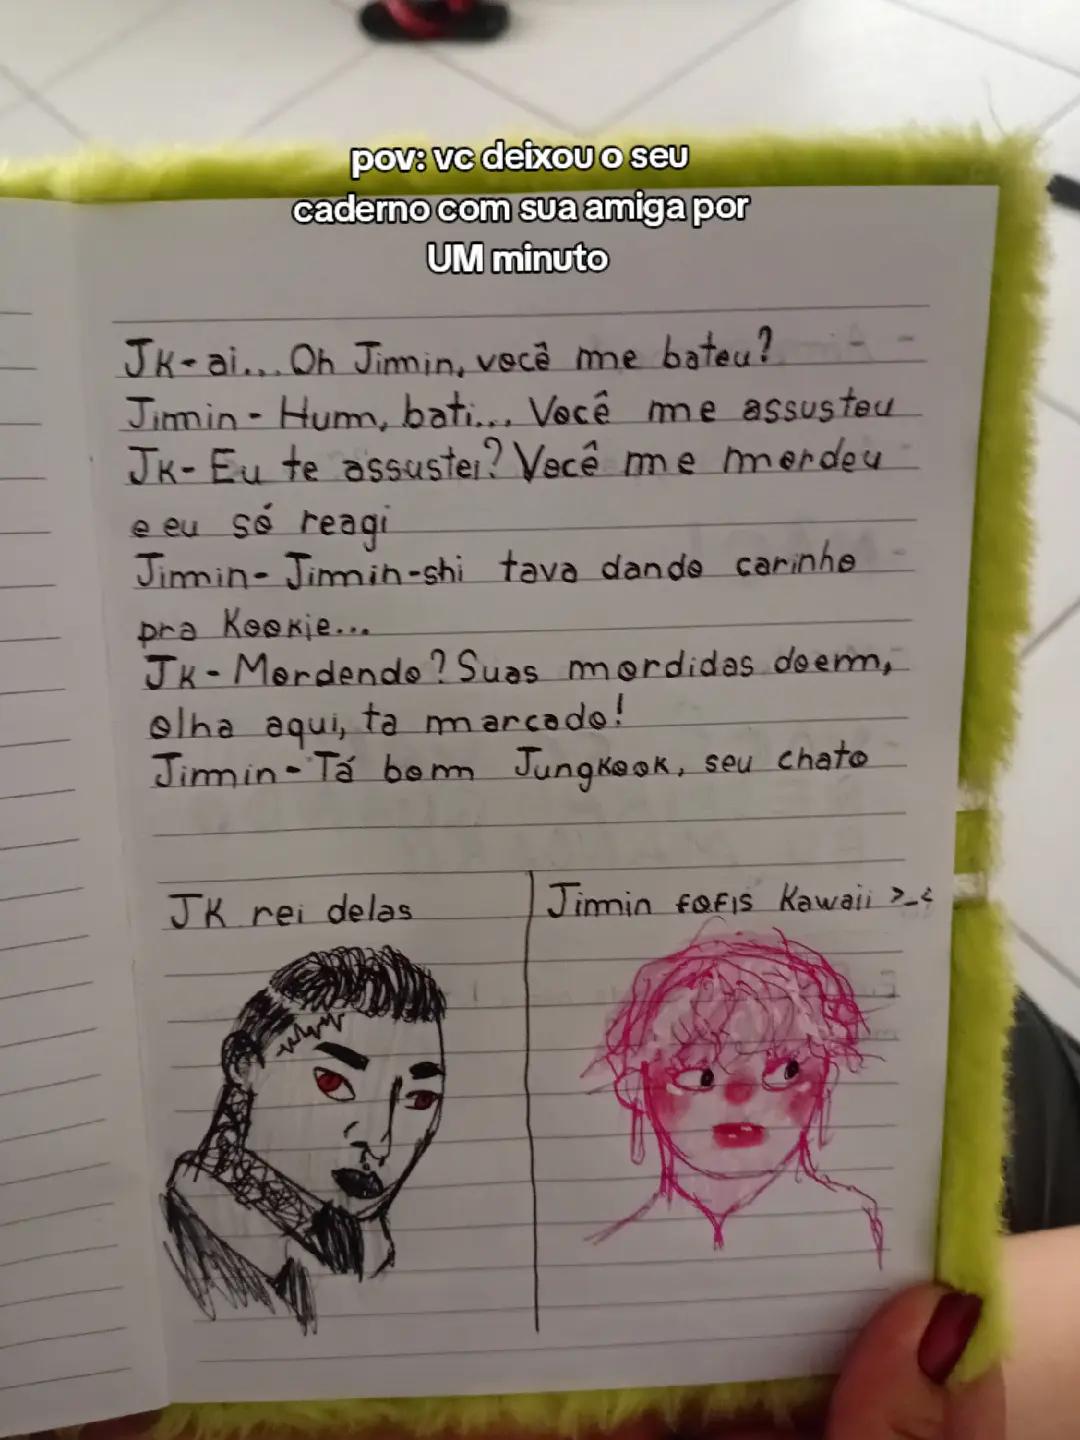 pov: vc deixou o seu
caderno com sua amiga por
UM minuto
JK-ai... Oh Jimin, você me bateu?
Jimin-Hum, bati... Você me assustou
JK-Eu te assustei? Você me mordeu
e eu só reagi
Jimin-Jimin-shi tava dando carinho
pra Kookie...
JK-Mordendo? Suas mordidas doem,
olha aqui, ta marcado!
Jimin-Tá bom Jungkook, seu chato
JK rei delas
Jimin fofis Kawaii >_<